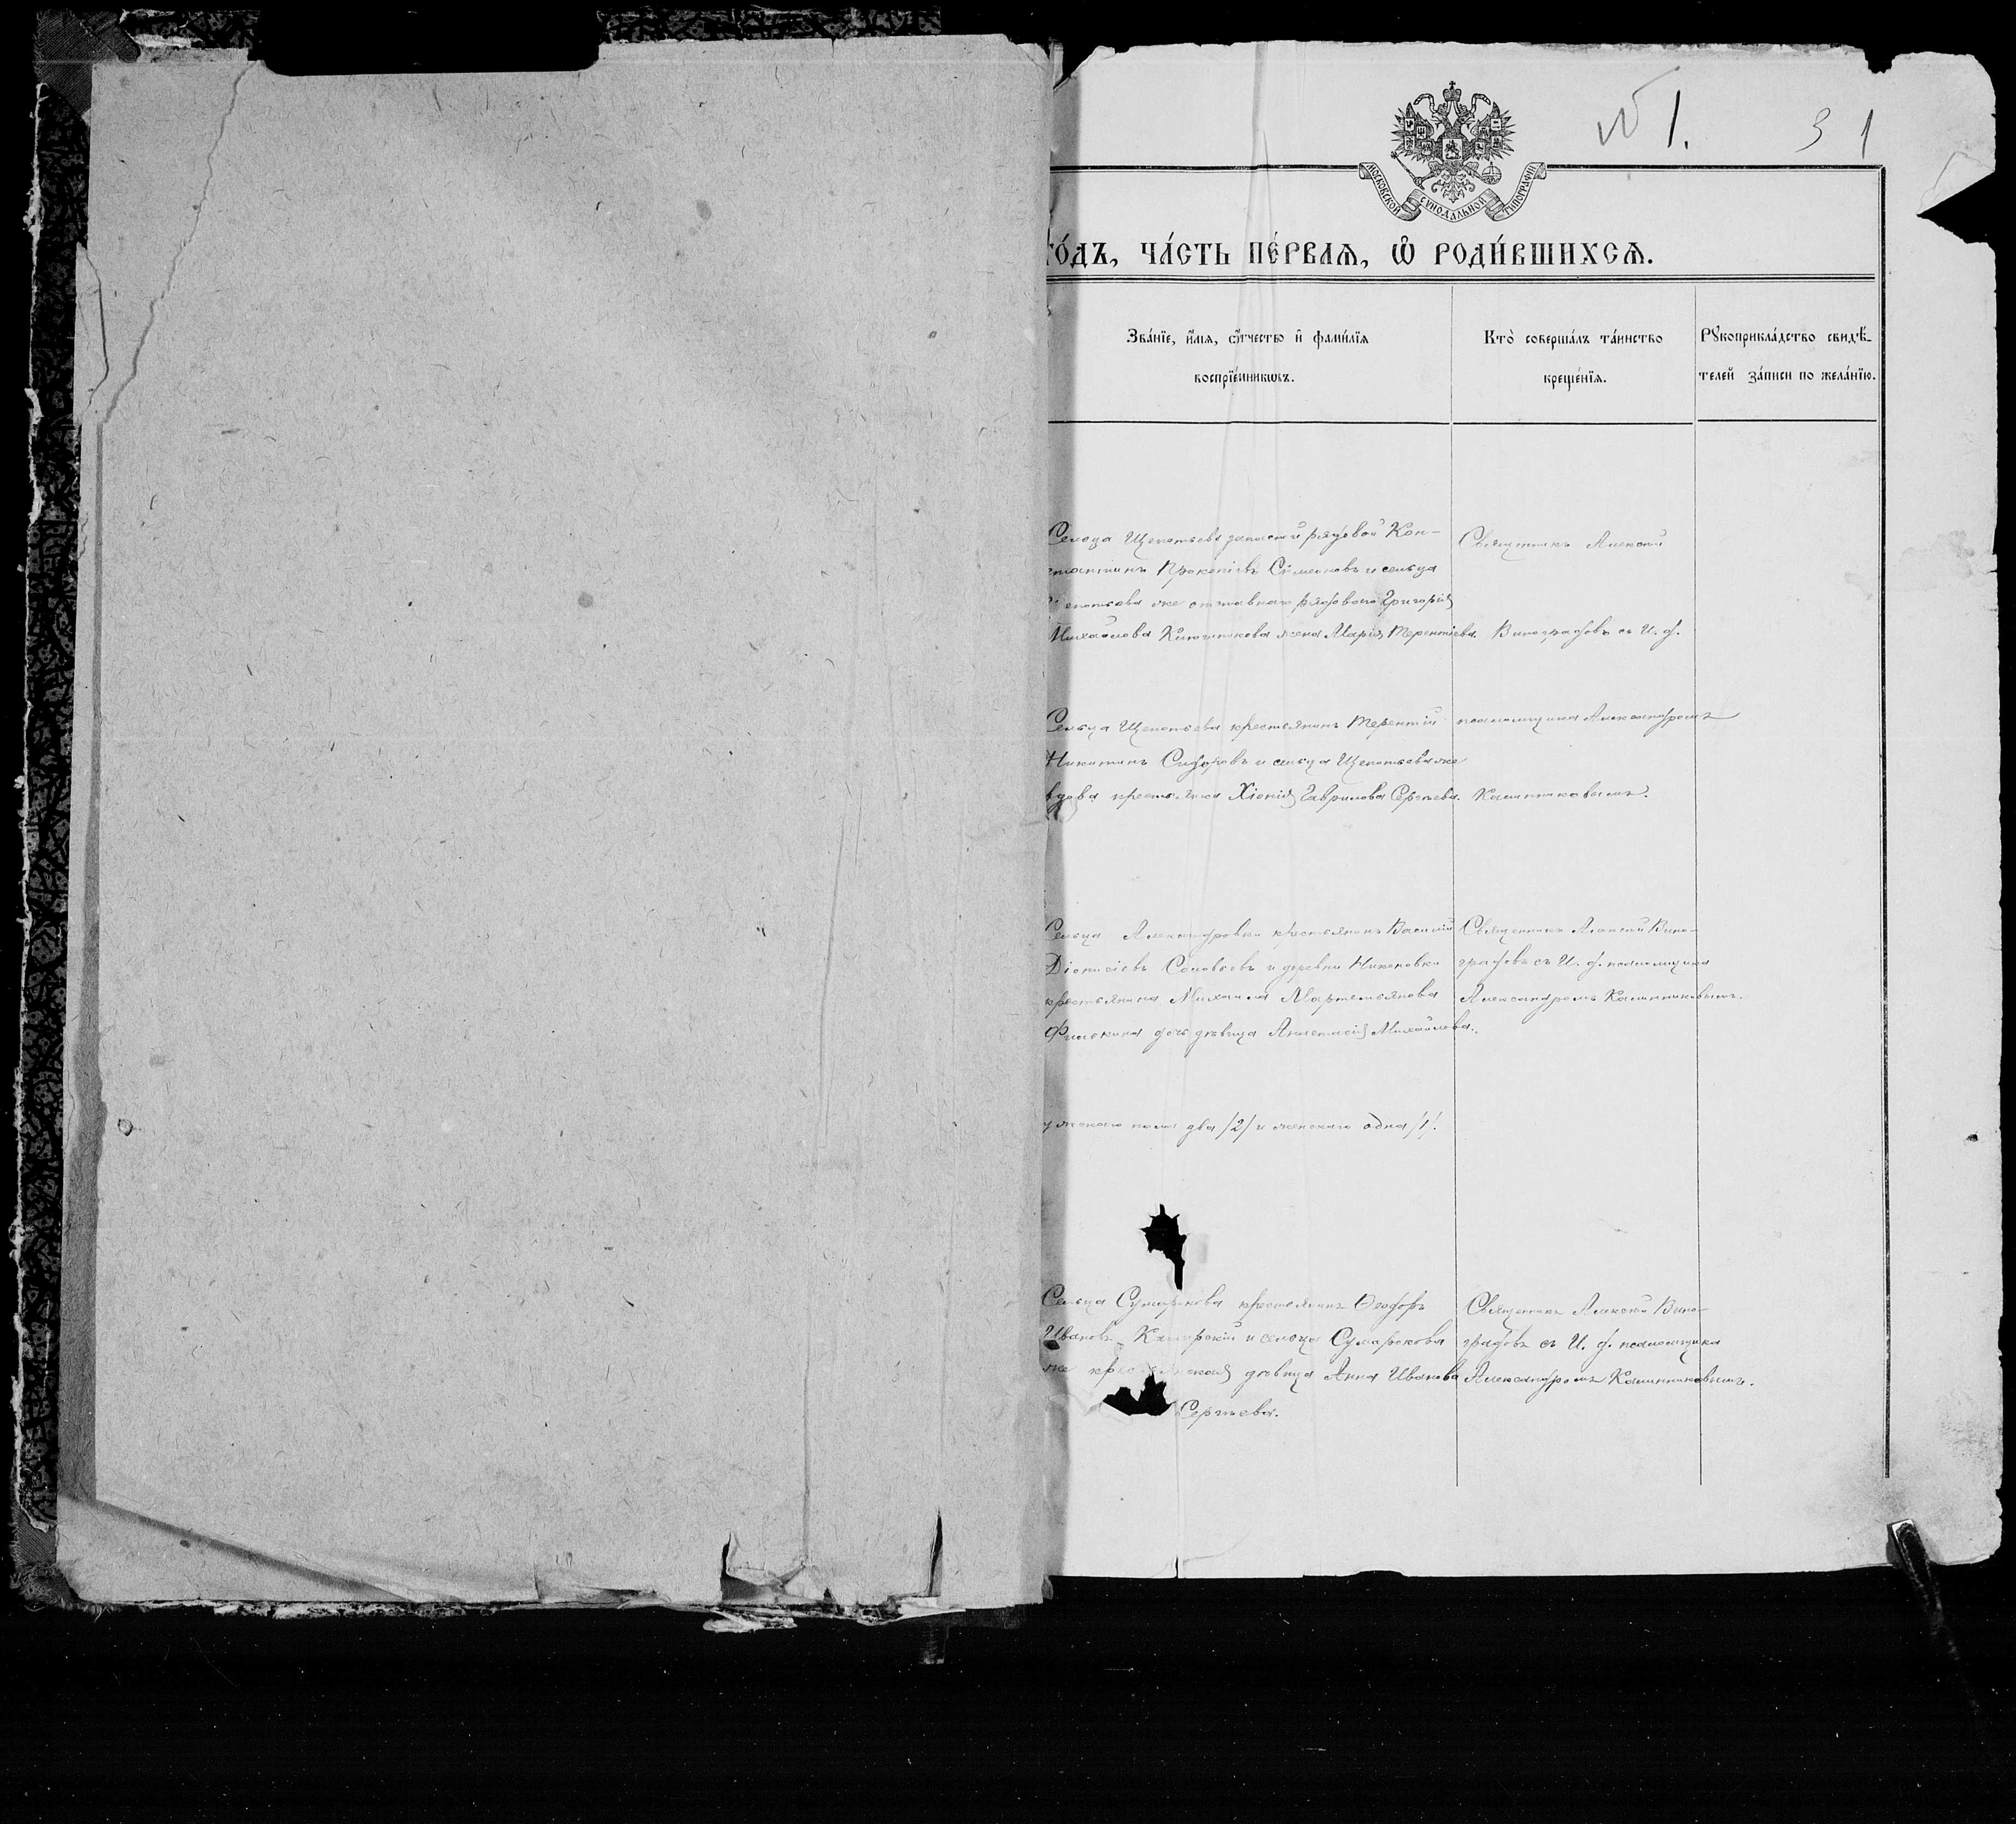 № 1. 31
МОСКОВСКОЙ СѴНОДАЛЬНОЙ ТИПОГРАФІИ
го́дъ, ча́сть пе́рваѧ, ѡ҆ роди́вшихсѧ.
Зва́нїе, и҆́мѧ, ѻ҆́тчество и҆ фами́лїѧ
воспрїе́мникѡвъ.
Кто̀ соверша́лъ та́инство
креще́нїѧ.
Рꙋкоприкла́дство свидѣ́-
телей за́писи по жела́нїю.
Сельца Щепотьева запасный рядовой Кон-
стантинъ Прокопіевъ Симеоновъ и сельца
Щепотьева же отставнаго рядоваго Григорія
Михайлова Ключникова жена Марія Терентіева.
Священникъ Алексій
Виноградовъ съ И. д.
Сельца Щепотьева крестьянинъ Терентій
Никитинъ Сидоровъ и сельца Щепотьева же
вдова крестьянка Хіонія Гаврилова Сергѣева.
псаломщика Александромъ
Калинниковымъ.
Сельца Александровки крестьянинъ Василій
Діонисіевъ Соловьевъ и деревни Никоновки
крестьянина Михаила Мартемьянова
Филокина дочь дѣвица Анастасія Михайлова.
Священникъ Алексій Вино-
градовъ съ И. д. псаломщика
Александромъ Калинниковымъ.
ужескаго пола два /2/ и женскаго одна /1/.
Сельца Сумарокова крестьянинъ Ѳеодоръ
Ивановъ Каширскій и сельца Сумарокова
же дѣвица Анна Иванова
Сергѣева.
Священникъ Алексій Вино-
градовъ съ И. д. псаломщика
Александромъ Калинниковымъ.